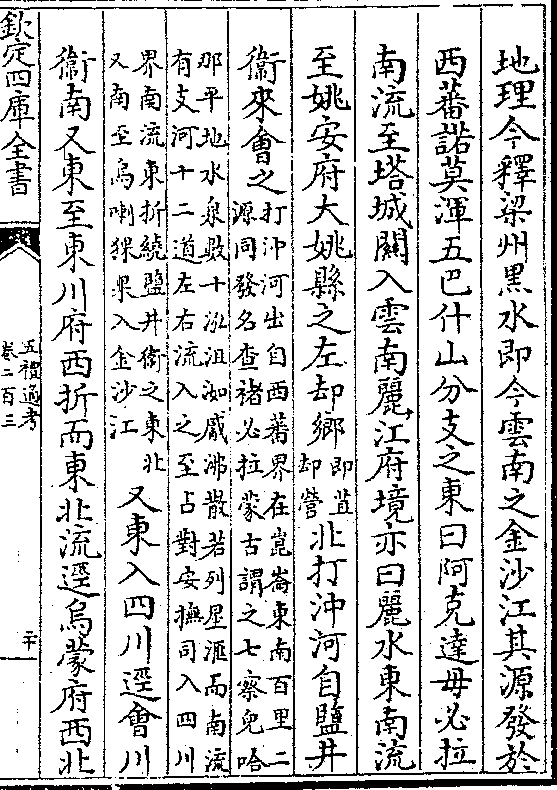 地理今釋梁州黑水即今雲南之金沙江其源發於
西蕃諾莫渾五巴什山分支之東曰阿克達母必拉
南流至塔城關入雲南麗江府境亦曰麗水東南流
至姚安府大姚縣之左却鄉
即苴
却營
北打沖河自鹽井
衞來會之
打沖河出自西蕃界在崑崙東南百里二
源同發名查褚必拉蒙古謂之七察兒哈
那平地水泉數十泓沮洳觱沸散若列星滙而南流
有支河十二道左右流入之至占對安撫司入四川
界南流東折繞鹽井衞之東北
又南至烏喇猓果入金沙江
又東入四川逕會川
衞南又東至東川府西折而東北流逕烏蒙府西北
欽定四庫全書
五禮通考
卷二百三
二十